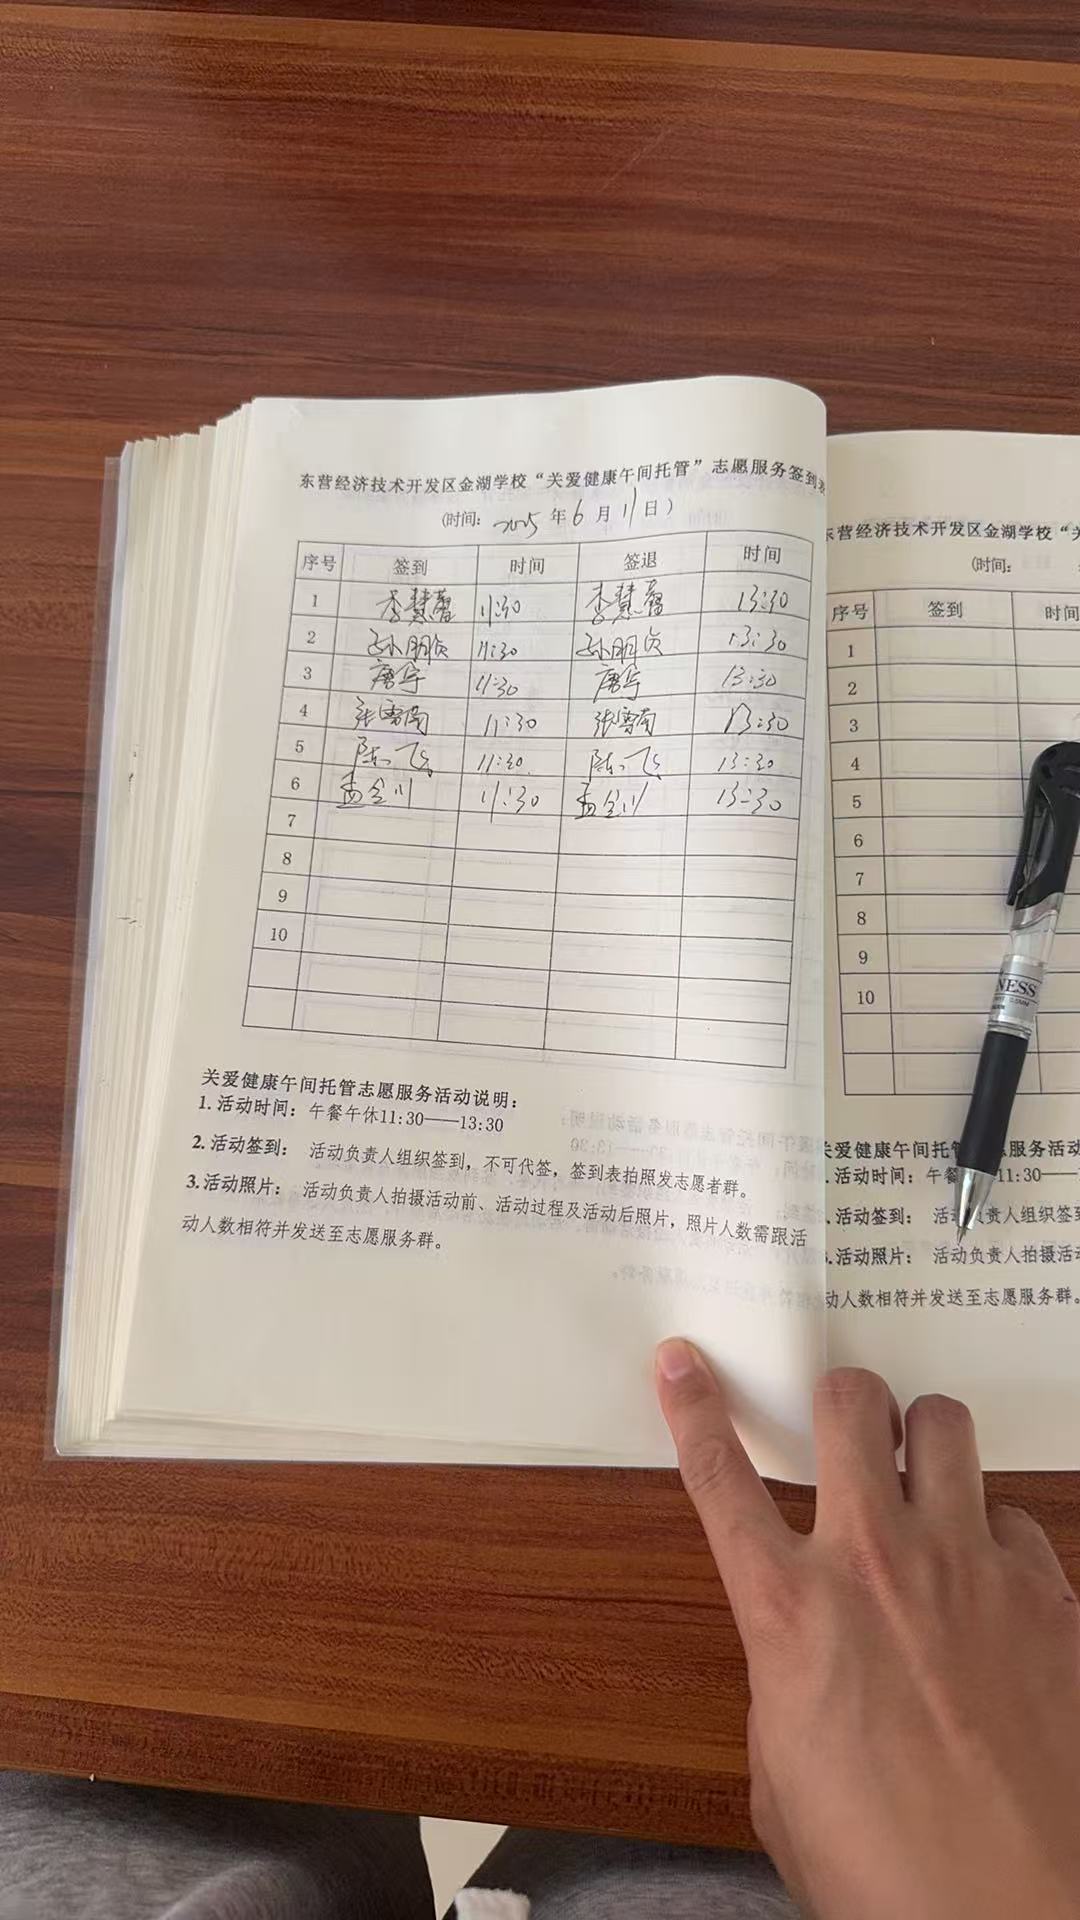 东营经济技术开发区金湖学校“关爱健康午间托管”志愿服务签到表
(时间: 2025年6月11日)
序号 签到 时间 签退 时间
1 李慧馨 11:30 李慧馨 13:30
2 孙朋贞 11:30 孙朋贞 13:30
3 唐宇 11:30 唐宇 13:30
4 张雪南 11:30 张雪南 13:30
5 陈飞 11:30 陈飞 13:30
6 孟令川 11:30 孟令川 13:30
7
8
9
10
关爱健康午间托管志愿服务活动说明:
1.活动时间: 午餐午休11:30——13:30
2.活动签到: 活动负责人组织签到,不可代签,签到表拍照发志愿者群。
3.活动照片: 活动负责人拍摄活动前、活动过程及活动后照片,照片人数需跟活
动人数相符并发送至志愿服务群。
东营经济技术开发区金湖学校“关
(时间:
序号 签到 时间
1
2
3
4
5
6
7
8
9
10
NESS
关爱健康午间托 志愿服务活动
.活动时间: 午餐 11:30——1
.活动签到: 活 负责人组织签到
.活动照片: 活动负责人拍摄活动
动人数相符并发送至志愿服务群。